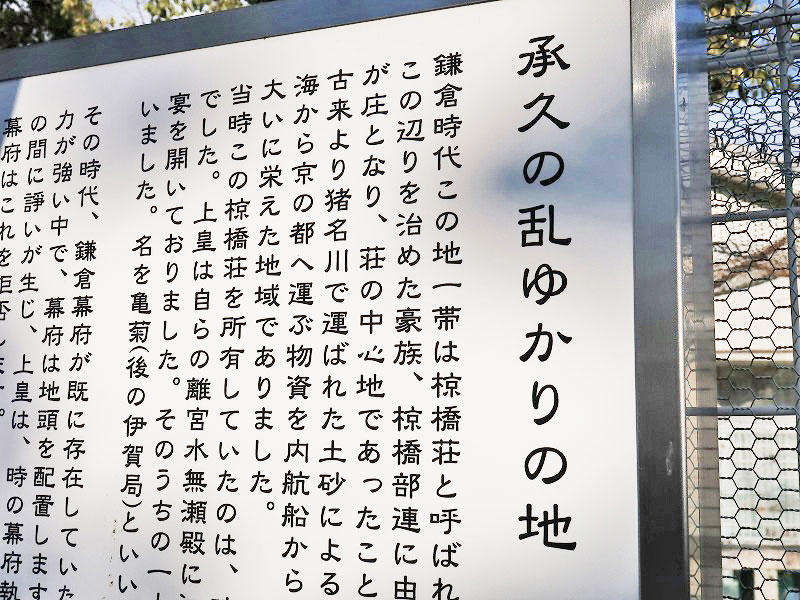 承久の乱ゆかりの地
鎌倉時代この地一帯は椋橋荘と呼ばれ
この辺りを治めた豪族、椋橋部連に由
が庄となり、荘の中心地であったこと
古来より猪名川で運ばれた土砂による
海から京の都へ運ぶ物資を内航船から
大いに栄えた地域でありました。
当時この椋橋荘を所有していたのは、
でした。上皇は自らの離宮水無瀬殿に
宴を開いておりました。そのうちの一
いました。名を亀菊(後の伊賀局)といい
その時代、鎌倉幕府が既に存在していた
力が強い中で、幕府は地頭を配置します
の間に諍いが生じ、上皇は、時の幕府執
幕府はこれを拒否します。